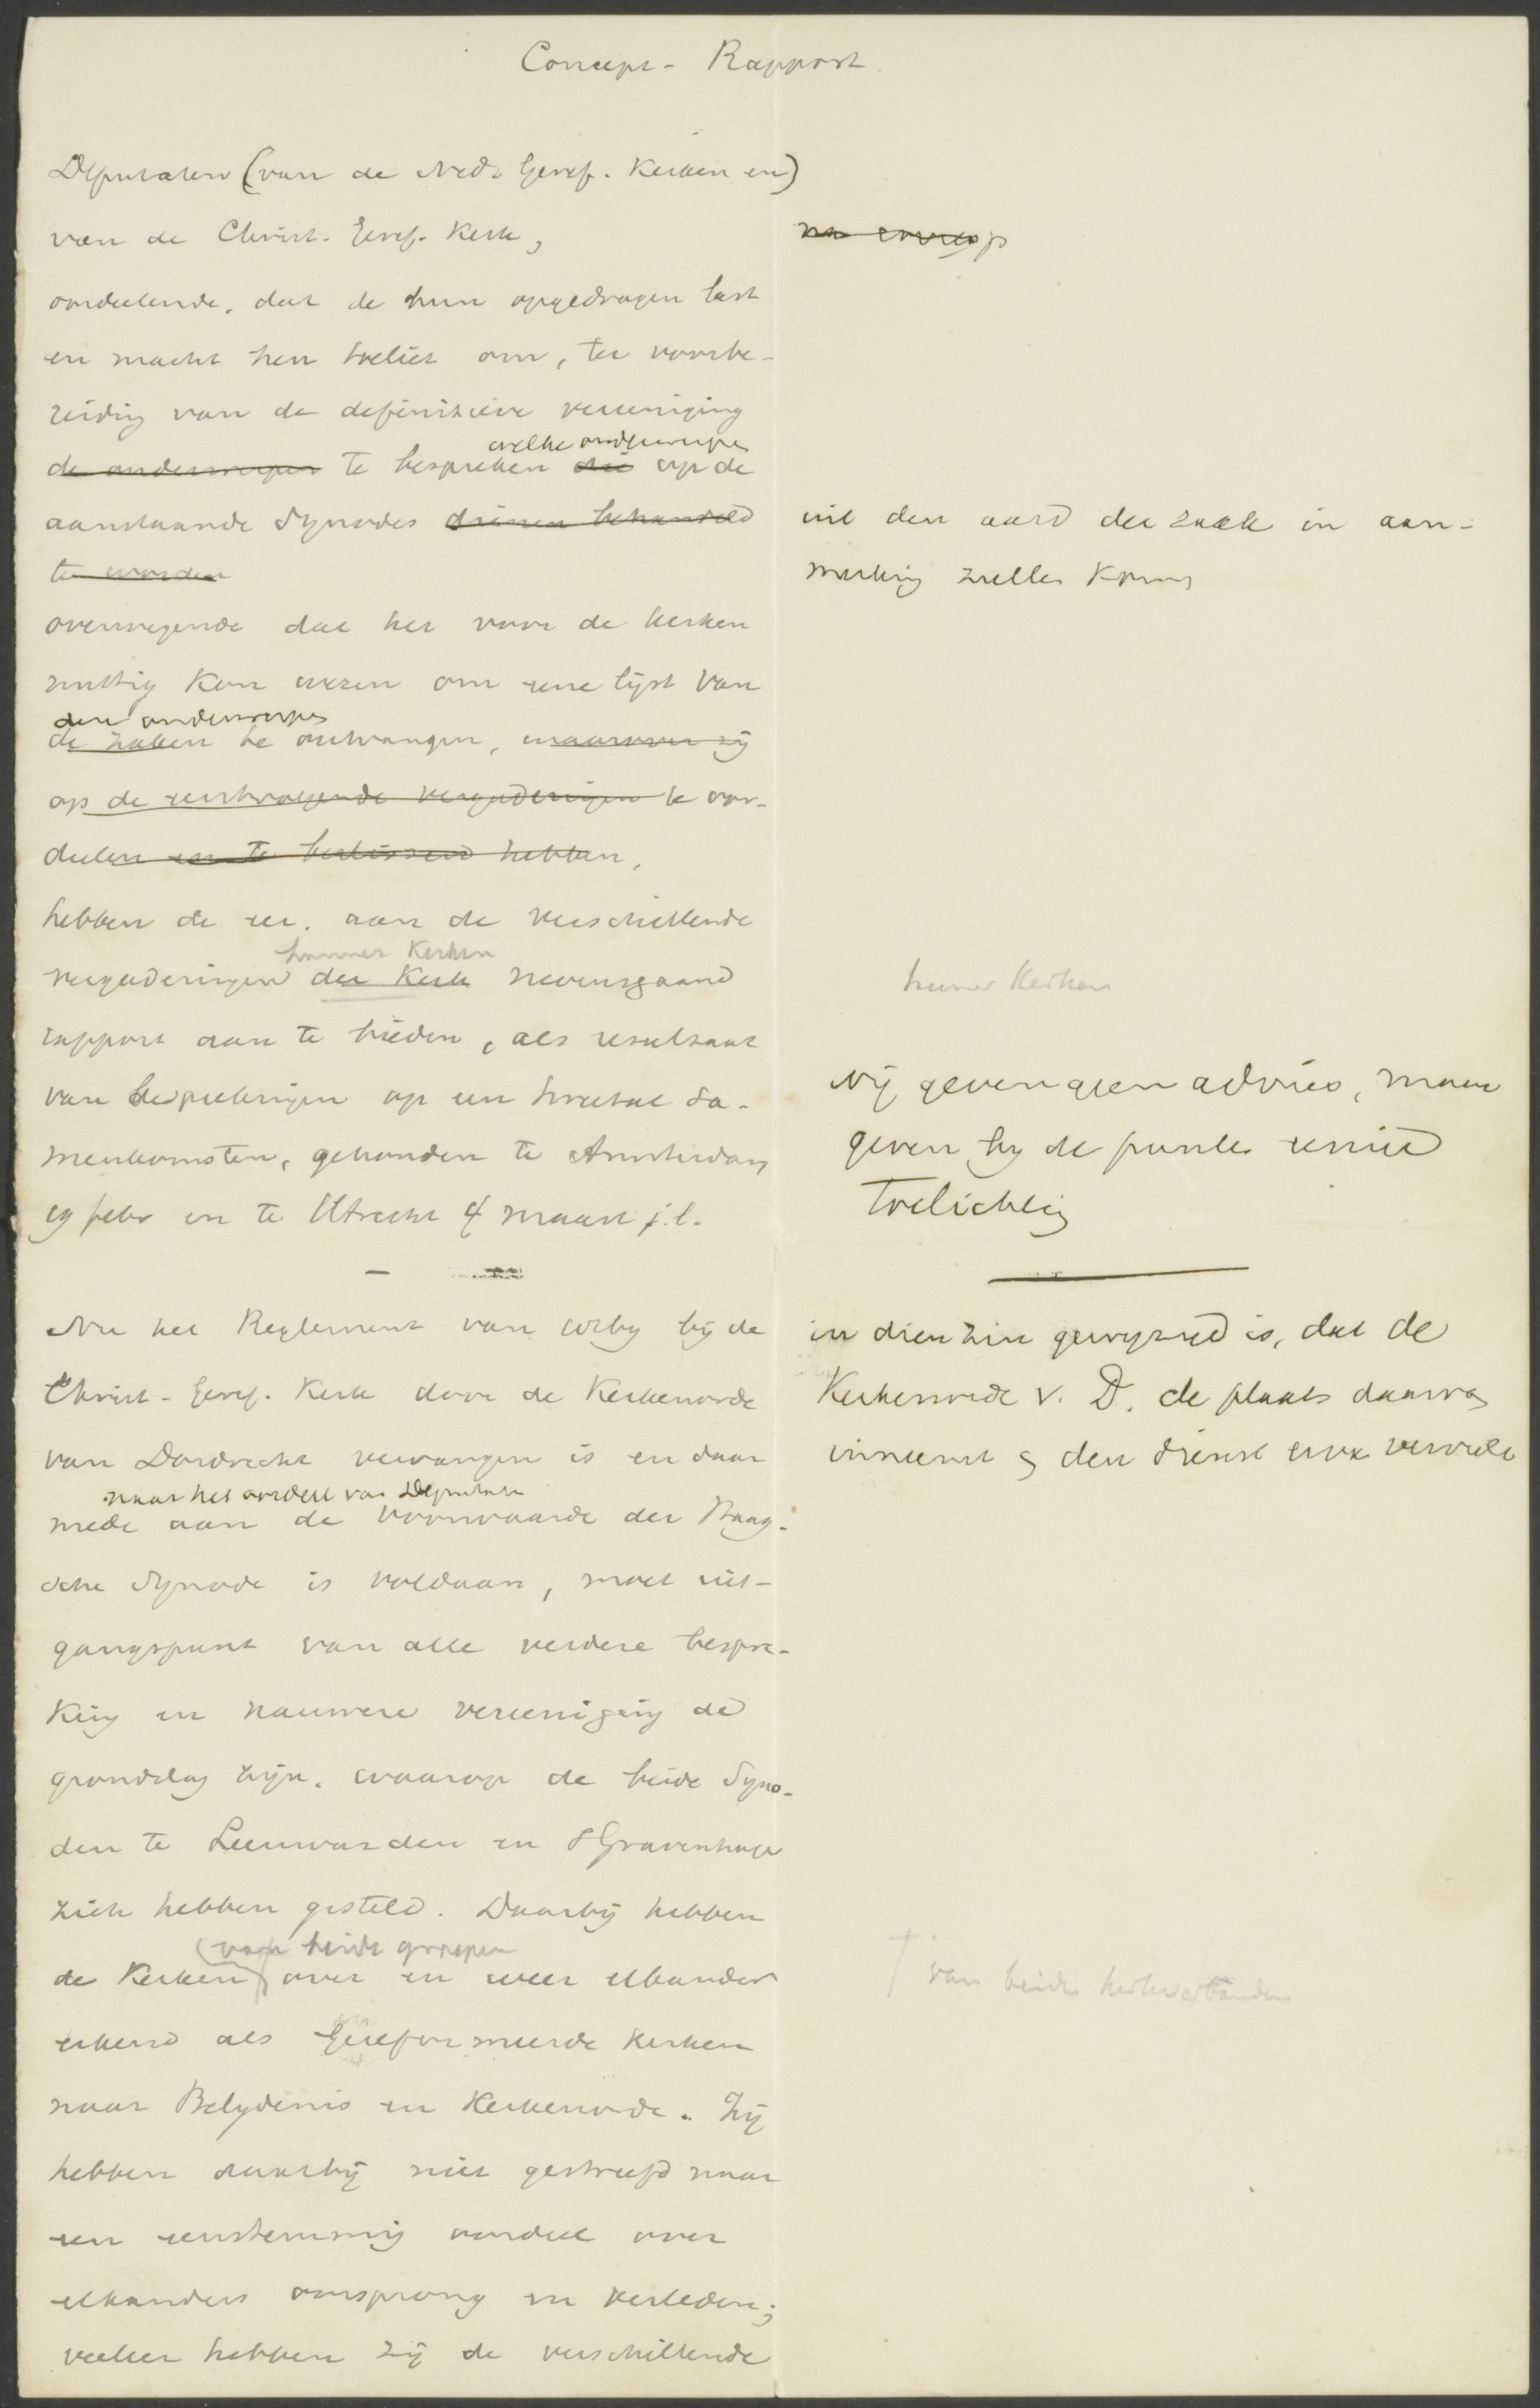 Concept - Rapport
Deputaten (van de Ned. Geref. Kerken en)
van de Christ. Geref. Kerk,
oordeelende, dat de hun opgedragen last
en macht hen toeliet om, ter voorbe-
reiding van de definitieve vereeniging
welke onderwerpen
de onderwerpen te bespreken die op de
aanstaande Synodes dienen behandeld
te worden
uit den aard der zaak in aan-
merking zullen komen
overwegende dat het voor de kerken
nuttig kon wezen om eene lijst van
den onderwerpen
de zaken te ontvangen, waarover zij
op de eerstvolgende vergaderingen te oor-
deelen en te beslissen hebben,
hebben de eer, aan de verschillende
hunner Kerken
vergaderingen der Kerk nevensgaand
hunner Kerken
rapport aan te bieden, als resultaat
van besprekingen op een tweetal sa-
menkomsten, gehouden te Amsterdam
19 febr en te Utrecht 4 maart j.l.
Wij geven geen advies, maar
geven bij de punten eenige
toelichting
Nu het Reglement van 1869 bij de
Christ. Geref. Kerk door de Kerkenorde
van Dordrecht vervangen is en daar
naar het oordeel van Deputaten
mede aan de voorwaarde der Haag-
in dien zin gewijzigd is, dat de
Kerkenorde v. D. de plaats daarvan
inneemt & den dienst ervan vervult
sche Synode is voldaan, moet uit-
gangspunt van alle verdere bespre-
king en nauwere vereeniging de
grondslag zijn, waarop de beide Syno-
den te Leeuwarden en 's Gravenhage
zich hebben gesteld. Daarbij hebben
(van beide groepen
de Kerken) over en weer elkander
van beide kerkverbanden
erkend als Gereformeerde Kerken
naar Belydenis en Kerkenorde. Zij
hebben daarbij niet gestreefd naar
een eenstemmig oordeel over
elkanders oorsprong en verleden;
veeleer hebben zij de verschillende